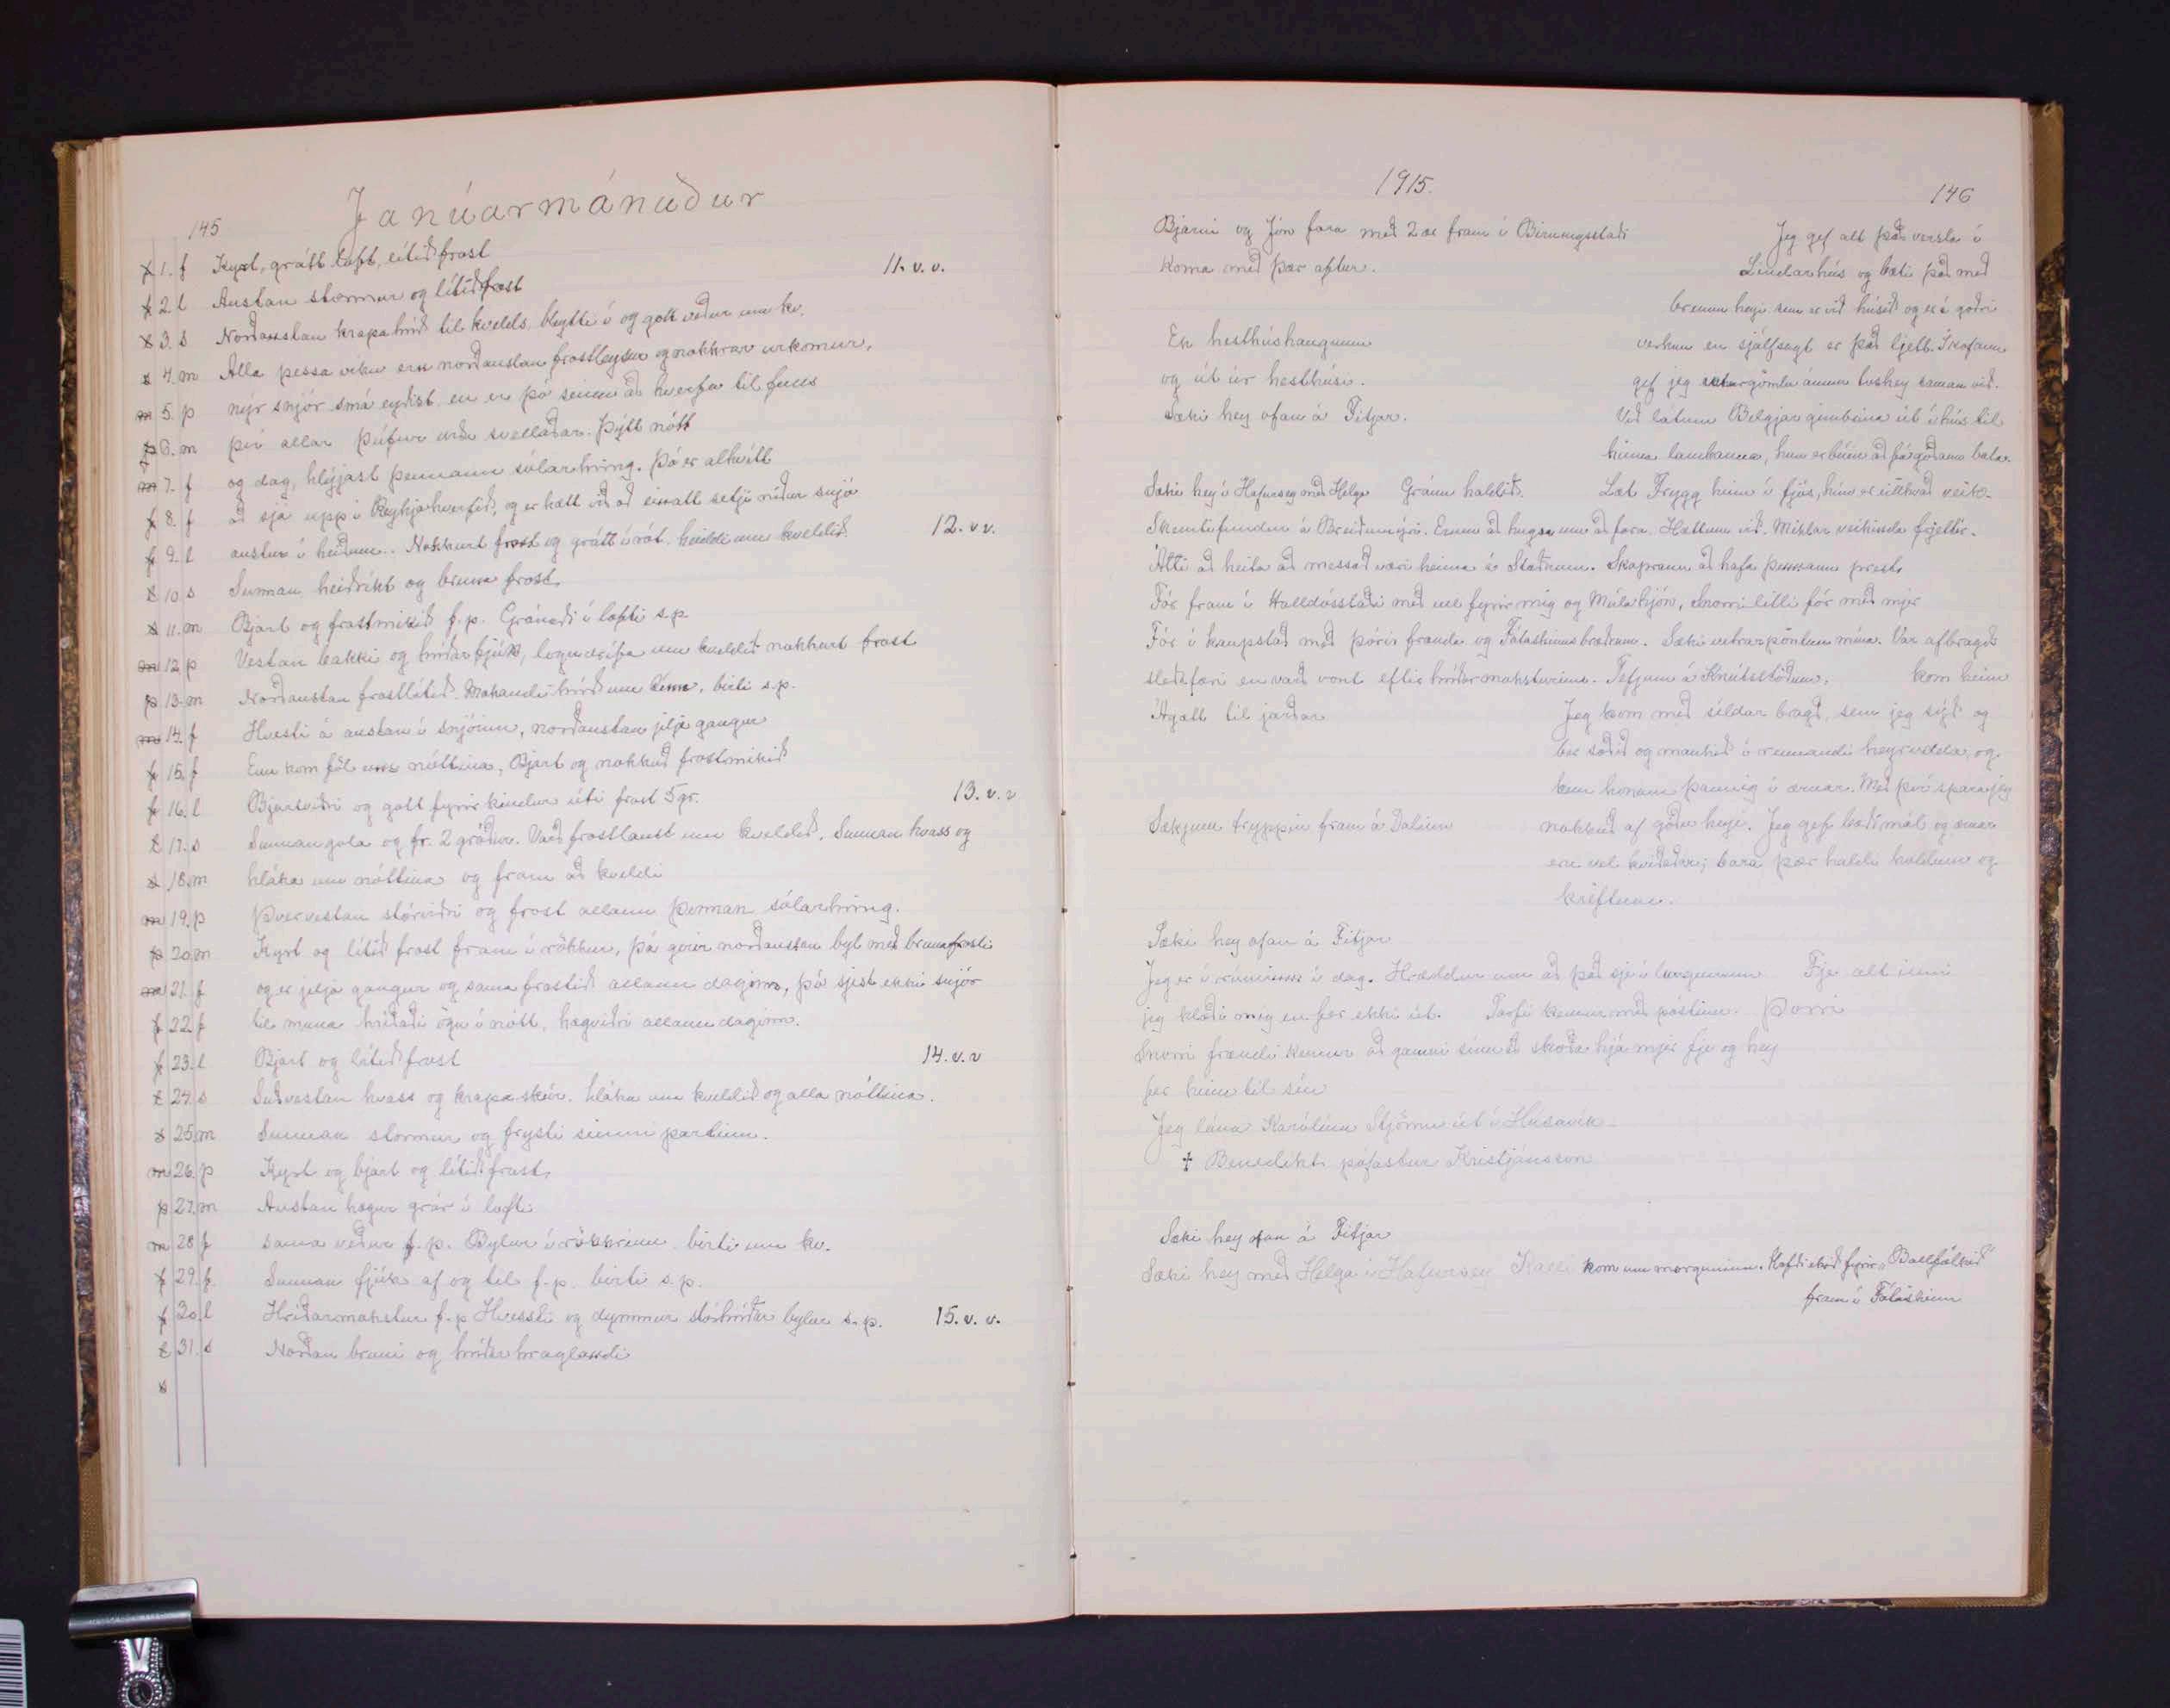 145
Janúarmánuður
1. f Kyrt, grátt loft, lítið frost
2. l Austan stormur og lítið frost 11. v. v.
3. s Norðaustan krapahríð til kvelds, bleytti í og gott veður um kv.
4. m Alla þessa viku eru norðaustan frostleysur og nokkrar úrkomur,
5. þ nýr snjór smá eyðist en er þó seinn að hverfa til fulls
6. m því allar þúfur urðu svellaðar. Þýtt nótt
7. f og dag, hlýjast þennann sólarhring. Þó er alhvítt
8. f að sjá upp í Reykjahverfið, og er hætt við að einatt setji niður snjó
9. l austur í heiðum. Nokkurt frost og grátt í rót, heiddi um kveldið. 12. v v.
10 s Sunnan heiðríkt og bruna frost
11. m Bjart og frostmikið f.p. Gránaði í lofti s.p
12 þ Vestan bakki og hríðarfjúk, logndrífa um kveldið nokkurt frost
13. m Norðaustan frostlítið. Mokandi hríð um tíma, birti s.p.
14. f Hvesti á austan í snjóinn, norðaustan jelja gangur
15. f Enn kom föl um nóttina, Bjart og nokkuð frostmikið
16. l Bjartviðri og gott fyrir kindur úti frost 5 gr. 13. v. v
17. s Sunnan gola og fr. 2 gráður. Varð frostlaust um kveldið. Sunnan hvass og
18. m hláka um nóttina og fram að kveldi
19. þ Þvervestan stórviðri og frost allann þennan sólarhring.
20 m Kyrt og lítið frost fram í rökkur, þá gerir norðaustan byl með brunafrosti
21. f og er jelja gangur og sama frostið allann daginn, þó sjest ekki snjór
22 f til muna hríðaði ögn í nótt, hægviðri allann daginn.
23. l Bjart og lítið frost 14. v. v
24. s Suðvestan hvass og krapa skúr. hláka um kveldið og alla nóttina.
25. m Sunnan stormur og frysti seinni partinn.
26. þ Kyrt og bjart og lítið frost,
27. m Austan hægur grár í lofti
28 f sama veður f.p. Bylur í rökkrinu birti um kv.
29. f. Sunnan fjúk af og til f.p. birti s.p.
30. l Hríðarmokstur f.p Hvessti og dymmur stórhríðar bylur s.p. 15. v. v.
31. s Norðan bruni og hríðar hraglandi
1915.
146
Bjarni og Jón fara með 2 ær fram í Birningsstaði
koma með þær aftur.
Jeg gef alt það versta í
Lindarhús og bæti það með
brenna heyi sem er við húsið og er í góðri
Ek hesthúshaugnum
verkun en sjálfsagt er það ljett. Í kofann
og út úr hesthúsi.
gef jeg gömlu ánum tuskey saman við.
Sæki hey ofan á Fitjar.
Við látum Belgjar gimbrina út í hús til
hinna lambanna, hun er búin að fá góðann bata.
Sæki hey í Hafursey með Helga Gránu haldið. Læt Trygg heim í fjós, hún er eitthvað veik.
Skemtifundur á Breiðumýri. Erum að hugsa um að fara. Hættum við. Miklar veikinda frjettir.
Átti að heita að messað væri heima á Staðnum. Skapraun að hafa þennann prest,
Fór fram í Halldórsstaði með ull fyrir mig og Múla hjón, Snorri litli fór með mjer
Fór í kaupstað með Þórir frænda og Fótaskinns bræðrum. Sæki vetrarpöntun mína. Var afbragðs
sleðafæri en varð vont eftir hríðarmoksturinn. Tefjum á Knútstöðum, kom heim
Ágætt til jarðar
Jeg kom með síldar bragð, sem jeg sýð og
læt soðið og maukið í rennandi heyrudda, og
kem honum þannig í ærnar. Með því spara jeg
Sækjum tryppin fram á Dalinn
nokkuð af góðu heyi. Jeg gef bæði mál og ærnar
eru vel kviðaðar; bara þær haldi holdum og
kröftum.
Sæki hey ofan á Fitjar
Jeg er í rúminu í dag. Hræddur um að það sje í lungunum Fje alt inni
jeg klæði mig en fer ekki út. Torfi kemur með póstinn. Þorri
Snorri frændi kemur að gamni sínu að skoða hjá mjer fje og hey
fer heim til sín
Jeg lána Karólínu Stjörnu út í Húsavík
† Benedikt prófastur Kristjánsson
Sæki hey ofan á Fitjar
Sæki hey með Helga í Hafursey Kalli kom um morguninn. Hafði ekið fyrir „Ballfólkið"
fram í Fótaskinn